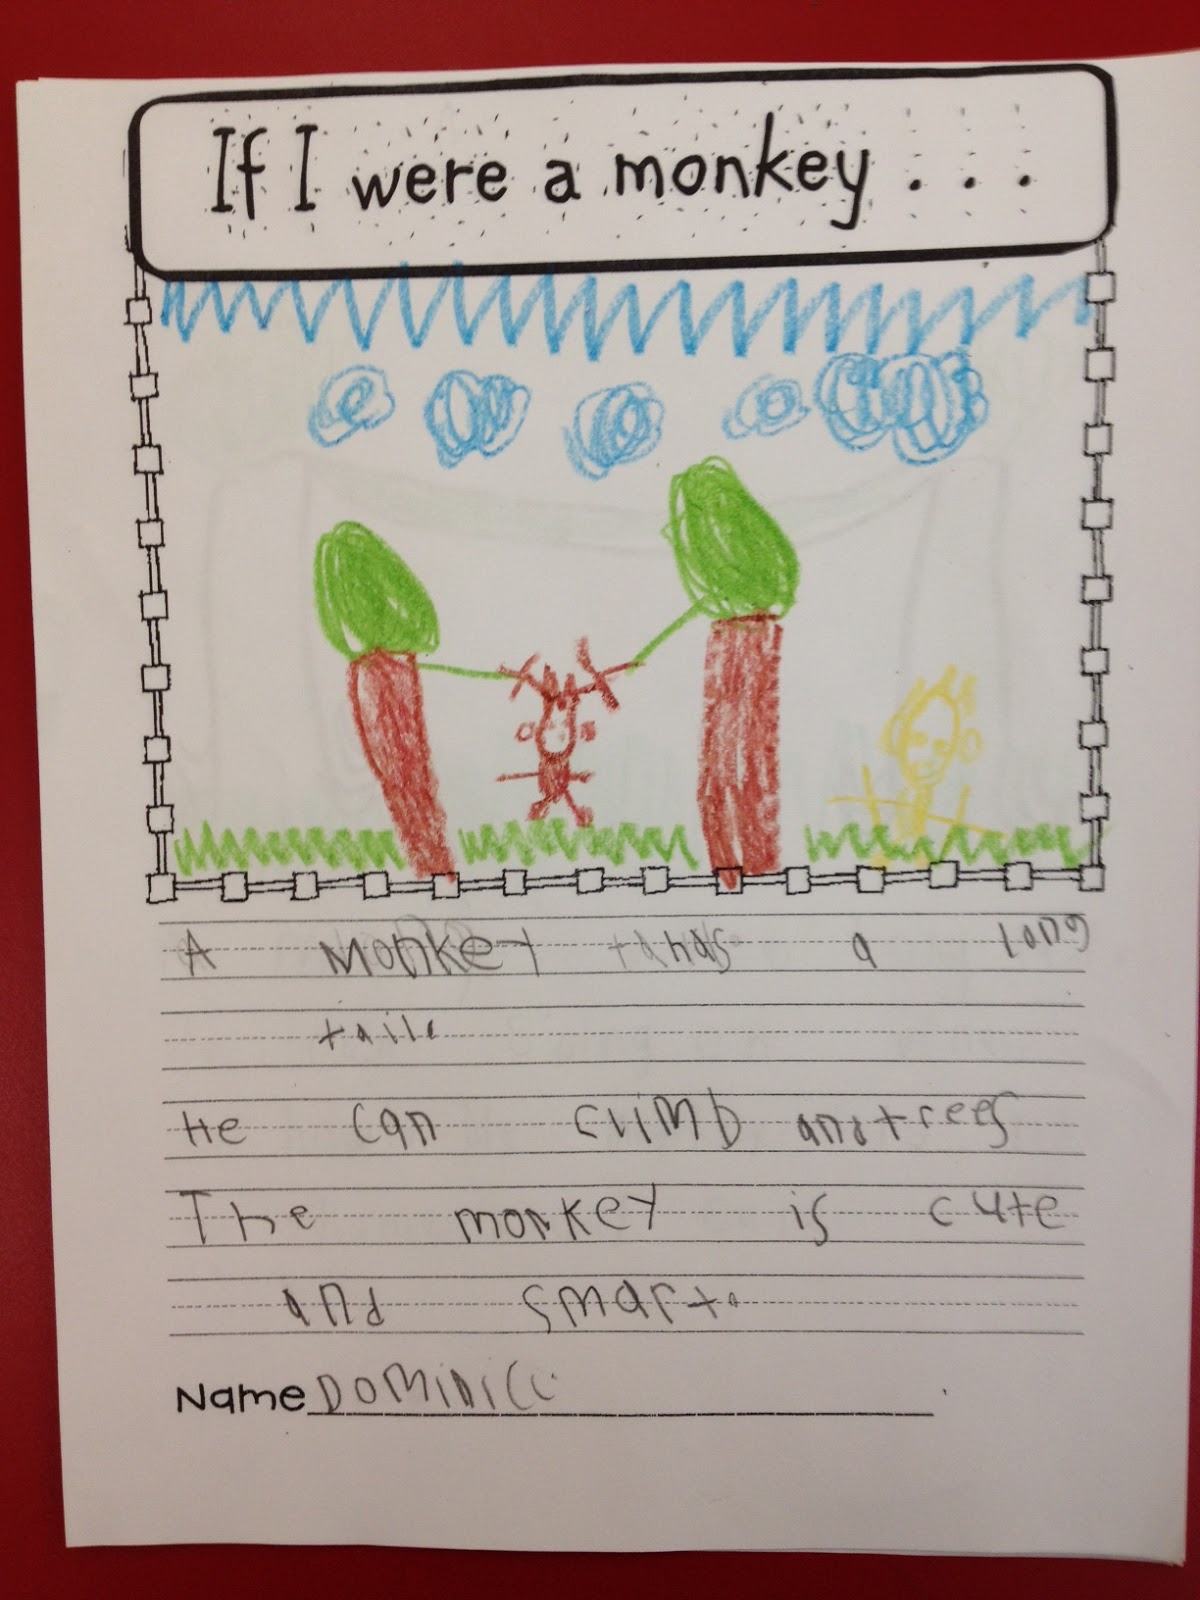 If I were a monkey . . .
A Monkey has a long
tail.
He can climb and trees
The monkey is cute
and smart.
Name Dominic